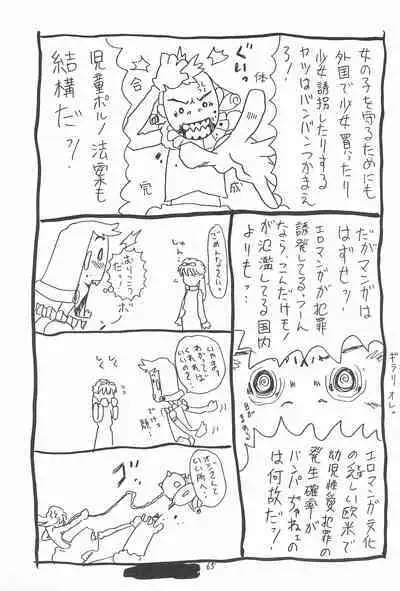 女の子を守るためにも
外国で少女買ったり
少女誘拐したりする
ヤツはバンバンつかまえ
ろ!
児童ポルノ法案も
結構だっ!
ぐいっ
合
体
完
成
だがマンガは
はずせっ!
エロマンガが犯罪
誘発してる、つーん
なら、こんだけエロ
が氾濫してる国内
よりもっ!
ギラリ オレ。
ごめんなさい。
じゅん
おりこう
だっ!
いやまぁ
わかって
くれれば
いいので
すが
エロマンガ文化
の貧しい欧米で
幼児性愛犯罪の
発生確率が
ハンパじゃねェの
は何故だ?!
オシオキして
いい所。
65